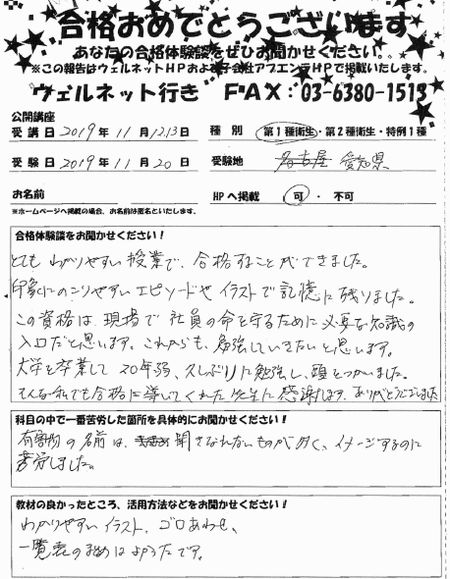 合格おめでとうございます
あなたの合格体験談をぜひお聞かせください。
※この報告はウェルネットHPおよび子会社アプエンテHPで掲載いたします。
ウェルネット行き FAX:03-6380-1513
公開講座
受講日 2019年 11月 12,13日 種別 第1種衛生・第2種衛生・特例1種
受験日 2019年 11月 20日 受験地 名古屋 愛知県
お名前 HPへ掲載 可・不可
※ホームページへ掲載の場合、お名前は匿名といたします。
合格体験談をお聞かせください!
とてもわかりやすい授業で、合格することができました。
印象にのこりやすいエピソードやイラストで記憶に残りました。
この資格は現場で社員の命を守るために必要な知識の
入口だと思います。これからも、勉強していきたいと思います。
大学を卒業して20年弱、久しぶりに勉強し、頭をつかいました。
そんな私でも合格に導いてくれた先生に感謝します。ありがとうございました
科目の中で一番苦労した箇所を具体的にお聞かせください!
有害物の名前は、聞きなれないものが多く、イメージするのに
苦労しました。
教材の良かったところ、活用方法などをお聞かせください!
わかりやすいイラスト、ゴロあわせ、
一覧表のまとめはよかったです。